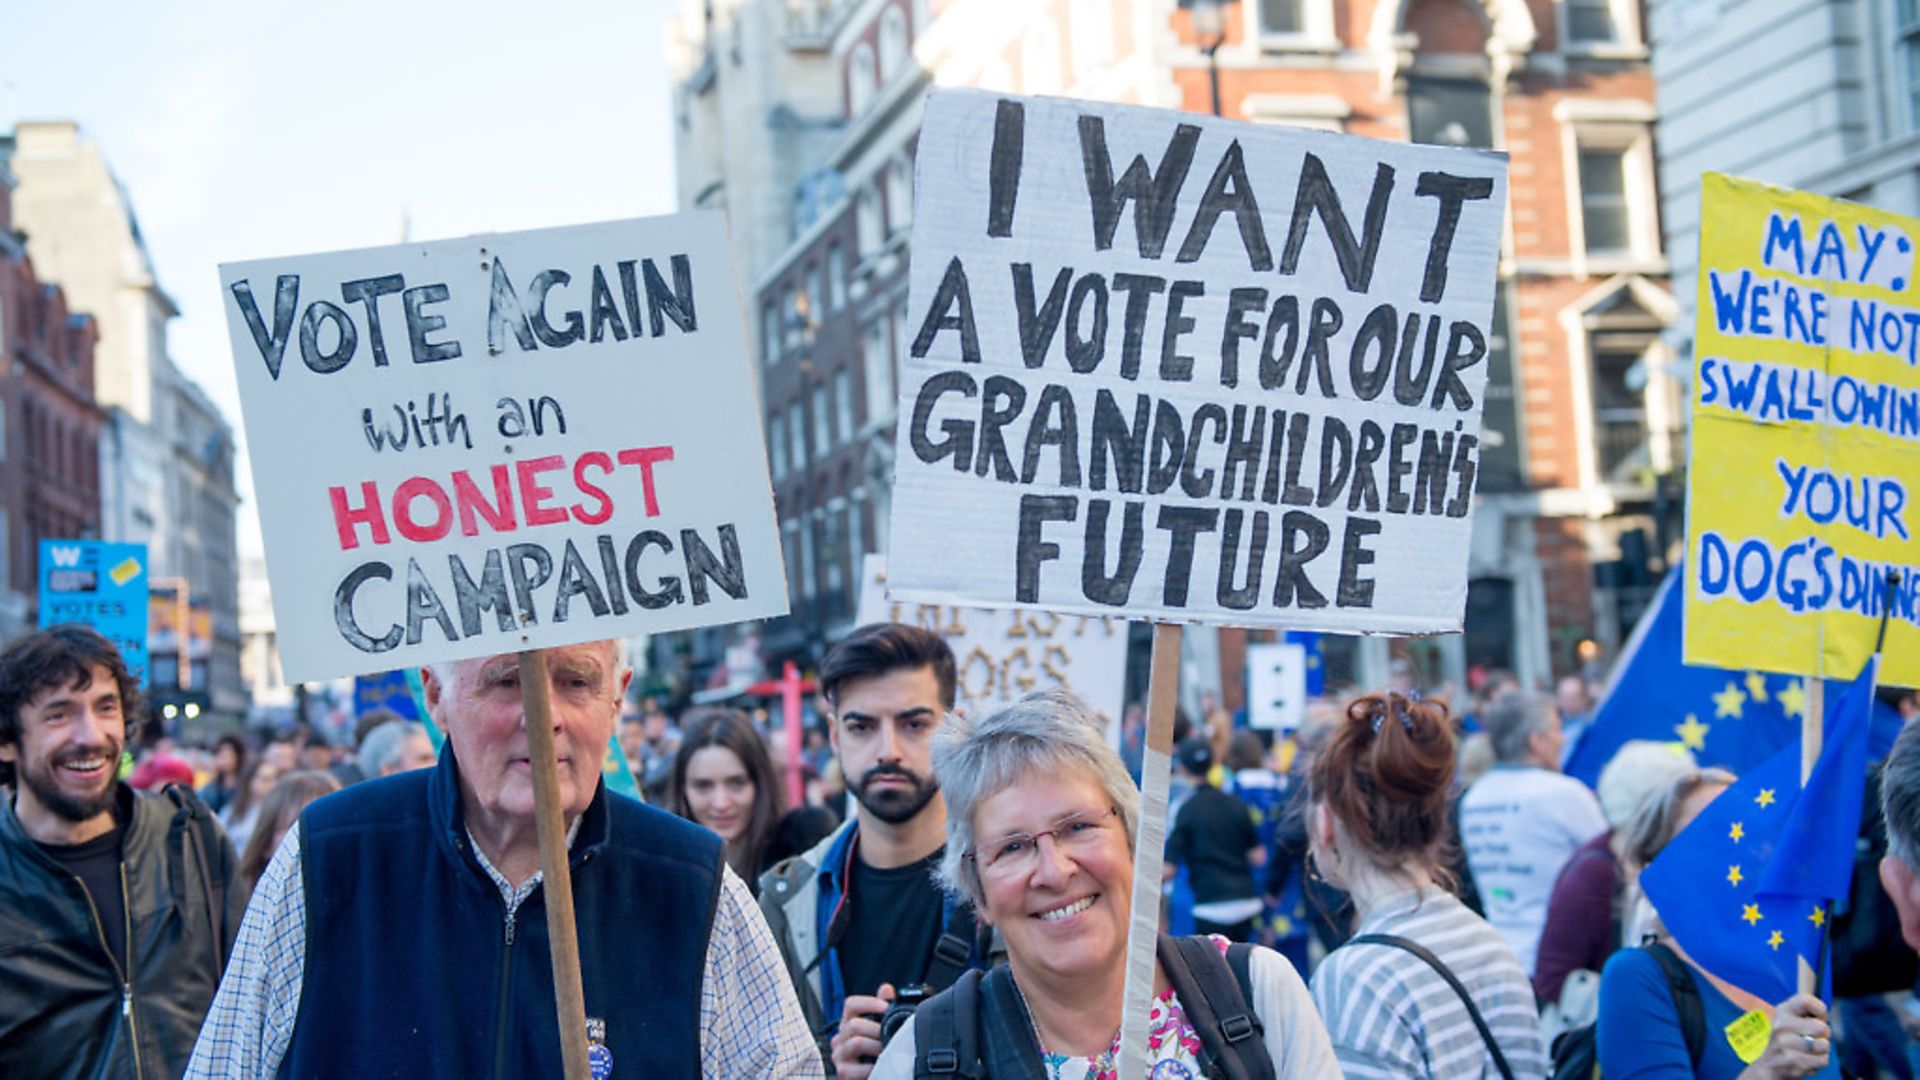 VOTE AGAIN
with an
HONEST
CAMPAIGN
I WANT
A VOTE FOR OUR
GRANDCHILDREN'S
FUTURE
MAY:
WE'RE NOT
SWALLOWIN
YOUR
DOG'S DINNE
IS A
DOGS
WE
VOTES